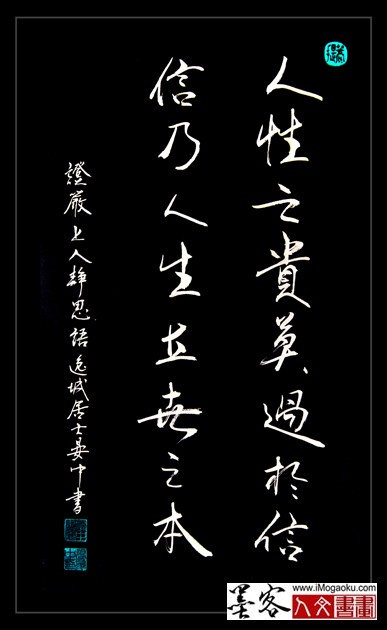 人性之貴莫過於信
信乃人生立世之本
證嚴上人靜思語 逸城居士晏中書
墨客
www.iMogaoku.com
人文書畫